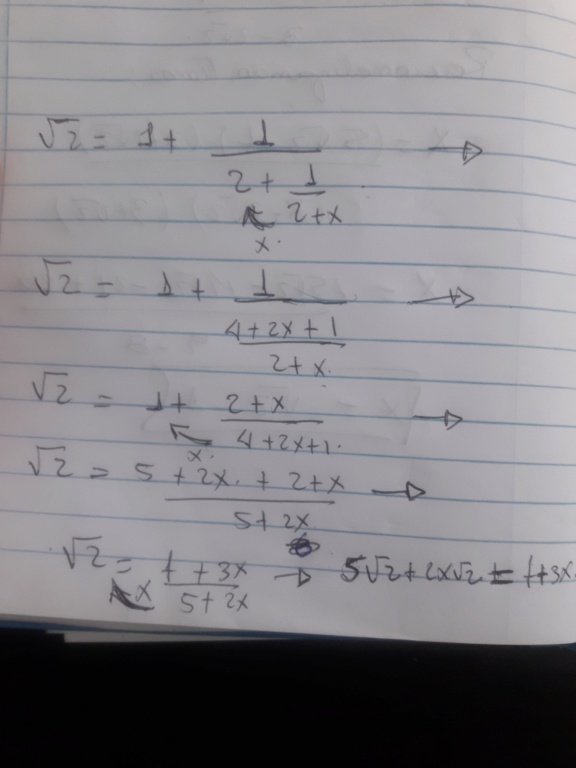 √2 = 1 + 1 / (2 + 1 / (2 + x)) →
x.
√2 = 1 + 1 / ((4 + 2x + 1) / (2 + x.)) →
√2 = 1 + (2 + x) / (4 + 2x + 1.) →
x.
√2 = (5 + 2x. + 2 + x) / (5 + 2x) →
√2 = (7 + 3x) / (5 + 2x) → 5√2 + 2x√2 = 7 + 3x.
x